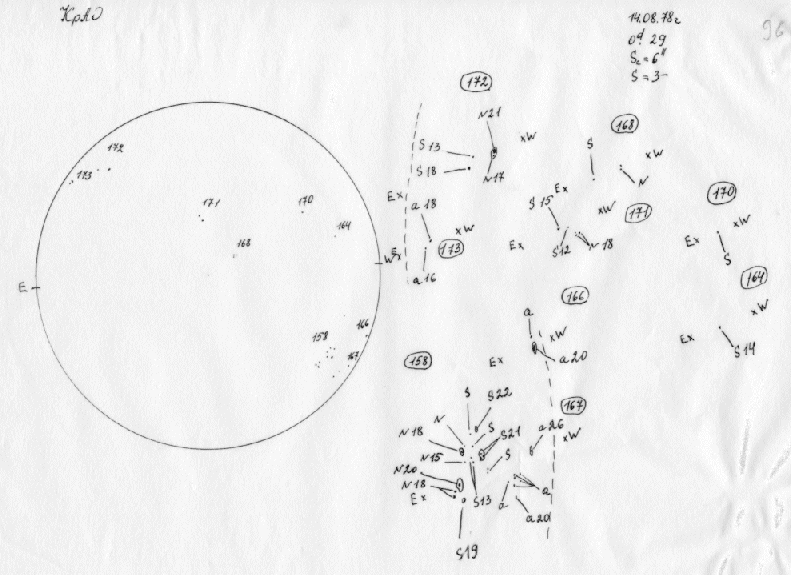 КрАО
14.08.78г
96
0ᵈ.29
S = 3-
172
N21
xW
S 13
S 18
N17
173
172
171
170
164
168
166
158
167
E
W
Ex
a 18
xW
Ex
173
a 16
168
S
xW
N
Ex
S 15
xW
171
Ex
S12
N 18
170
xW
Ex
S
164
xW
Ex
S14
166
a
xW
Ex
a 20
158
S
S22
N
S
N18
S21
N15
S
N20
N18
Ex
S13
S19
167
a 26
xW
a
a
a 20